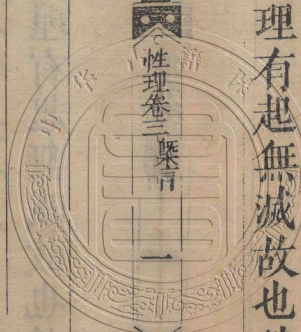 理有起無滅故也
性理卷三
一